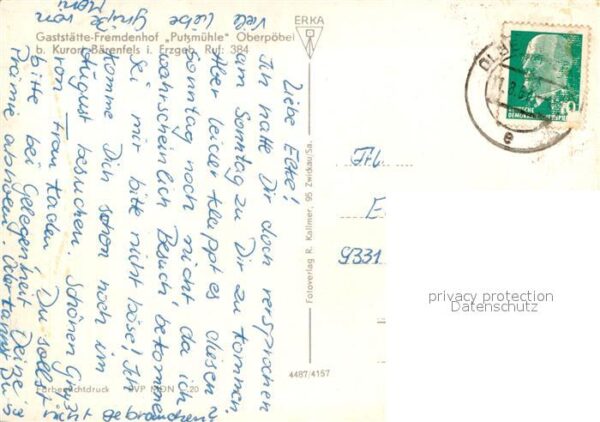 Gaststätte-Fremdenhof „Putzmühle" Oberpöbel
b. Kurort Bärenfels i. Erzgeb. Ruf: 384
ERKA
Liebe Ecke!
Ich hatte Dir doch versprochen
am Sonntag zu Dir zu kommen.
Aber leider klappt es diesen
Sonntag noch nicht da ich
wahrscheinlich Besuch bekomme.
Sei mir bitte nicht böse! Ich
komme Dich schon noch im
August besuchen. Schönen Gruß
von Frau Haden. Du sollst
bitte bei Gelegenheit Deine
Prämie abholen. Oder kannst Du sie
nicht gebrauchen?
Viele liebe
Grüße
Moni
Fotoverlag R. Kallmer, 95 Zwickau/Sa.
4487/4157
Farbenlichtdruck EVP MDN -.20
Frl.
9331
DEUTSCHE
DEMOKRATISCHE REPUBLIK
10
e
privacy protection
Datenschutz